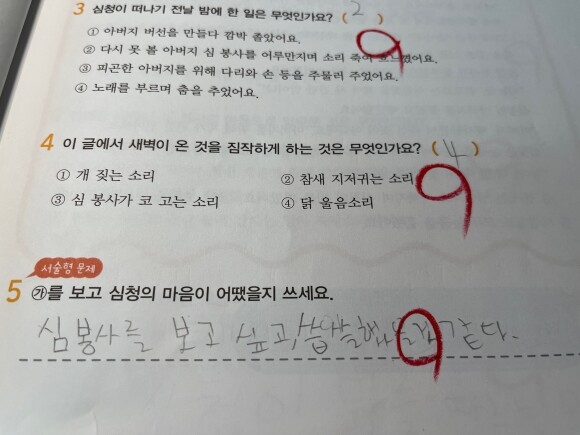 3 심청이 떠나기 전날 밤에 한 일은 무엇인가요? ( 2 )
① 아버지 버선을 만들다 깜박 졸았어요.
② 다시 못 볼 아버지 심 봉사를 어루만지며 소리 죽여 흐느꼈어요.
③ 피곤한 아버지를 위해 다리와 손 등을 주물러 주었어요.
④ 노래를 부르며 춤을 추었어요.
4 이 글에서 새벽이 온 것을 짐작하게 하는 것은 무엇인가요? ( 4 )
① 개 짖는 소리 ② 참새 지저귀는 소리
③ 심 봉사가 코 고는 소리 ④ 닭 울음소리
서술형 문제
5 ㉮를 보고 심청의 마음이 어땠을지 쓰세요.
심봉사를 보고 싶고, 같다.